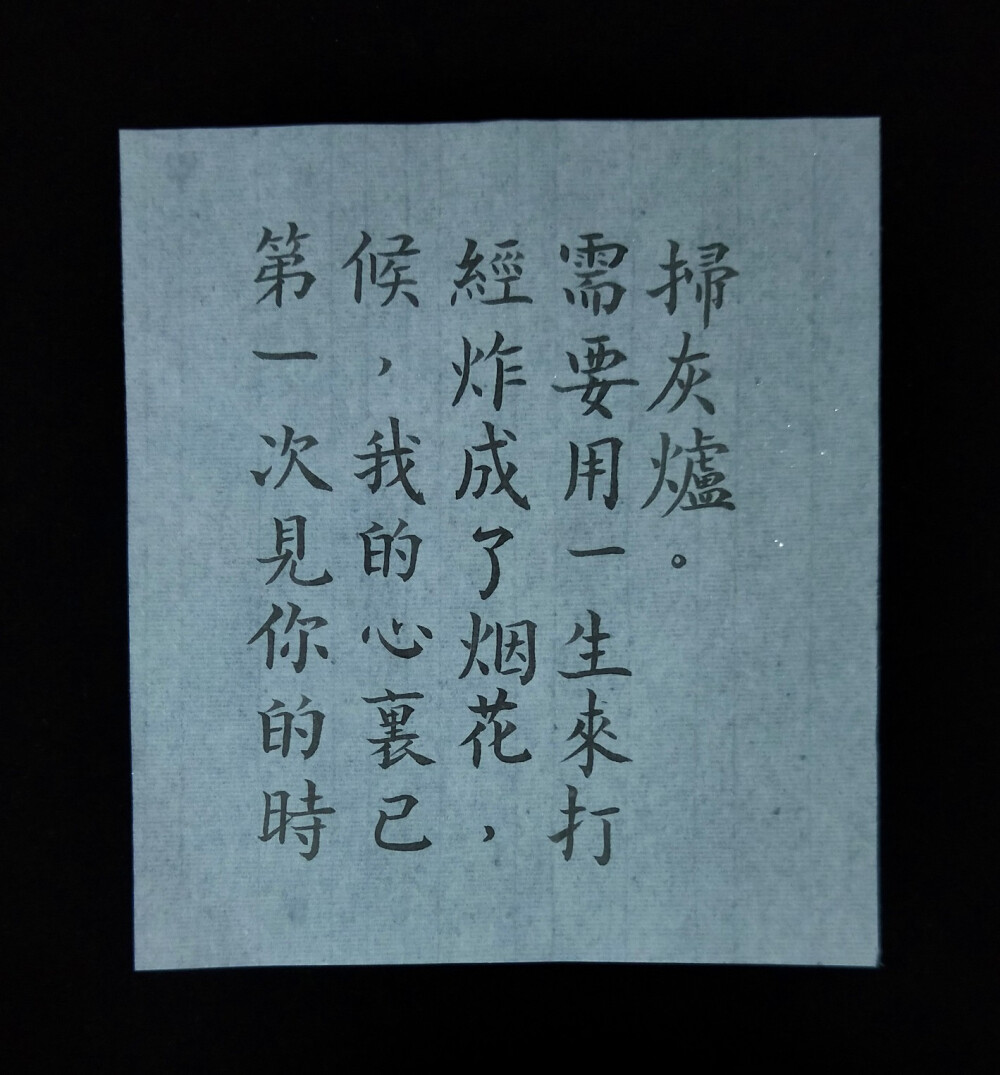 第一次見你的時
候，我的心裏已
經炸成了烟花，
需要用一生來打
掃灰爐。